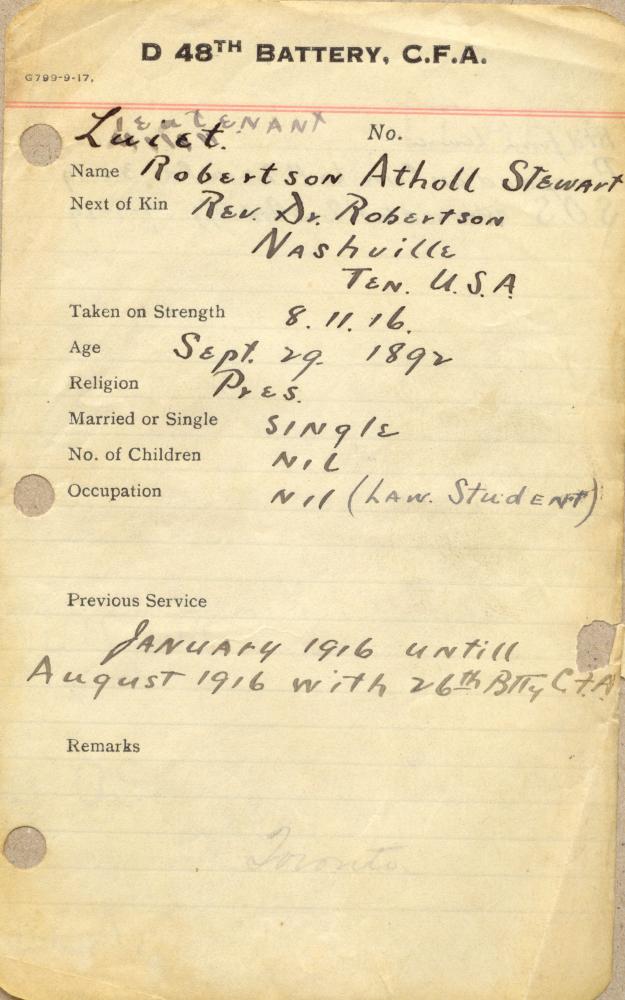 D 48TH BATTERY, C.F.A.
G799-9-17.
LIEUTENANT
Luiet. No.
Name Robertson Atholl Stewart
Next of Kin Rev. Dr. Robertson
Nashville
Ten. U.S.A
Taken on Strength 8.11.16.
Age Sept. 29. 1892
Religion Pres.
Married or Single Single
No. of Children Nil
Occupation Nil (Law. Student)
Previous Service
January 1916 untill
August 1916 with 26th Btty C.F.A
Remarks
Toronto